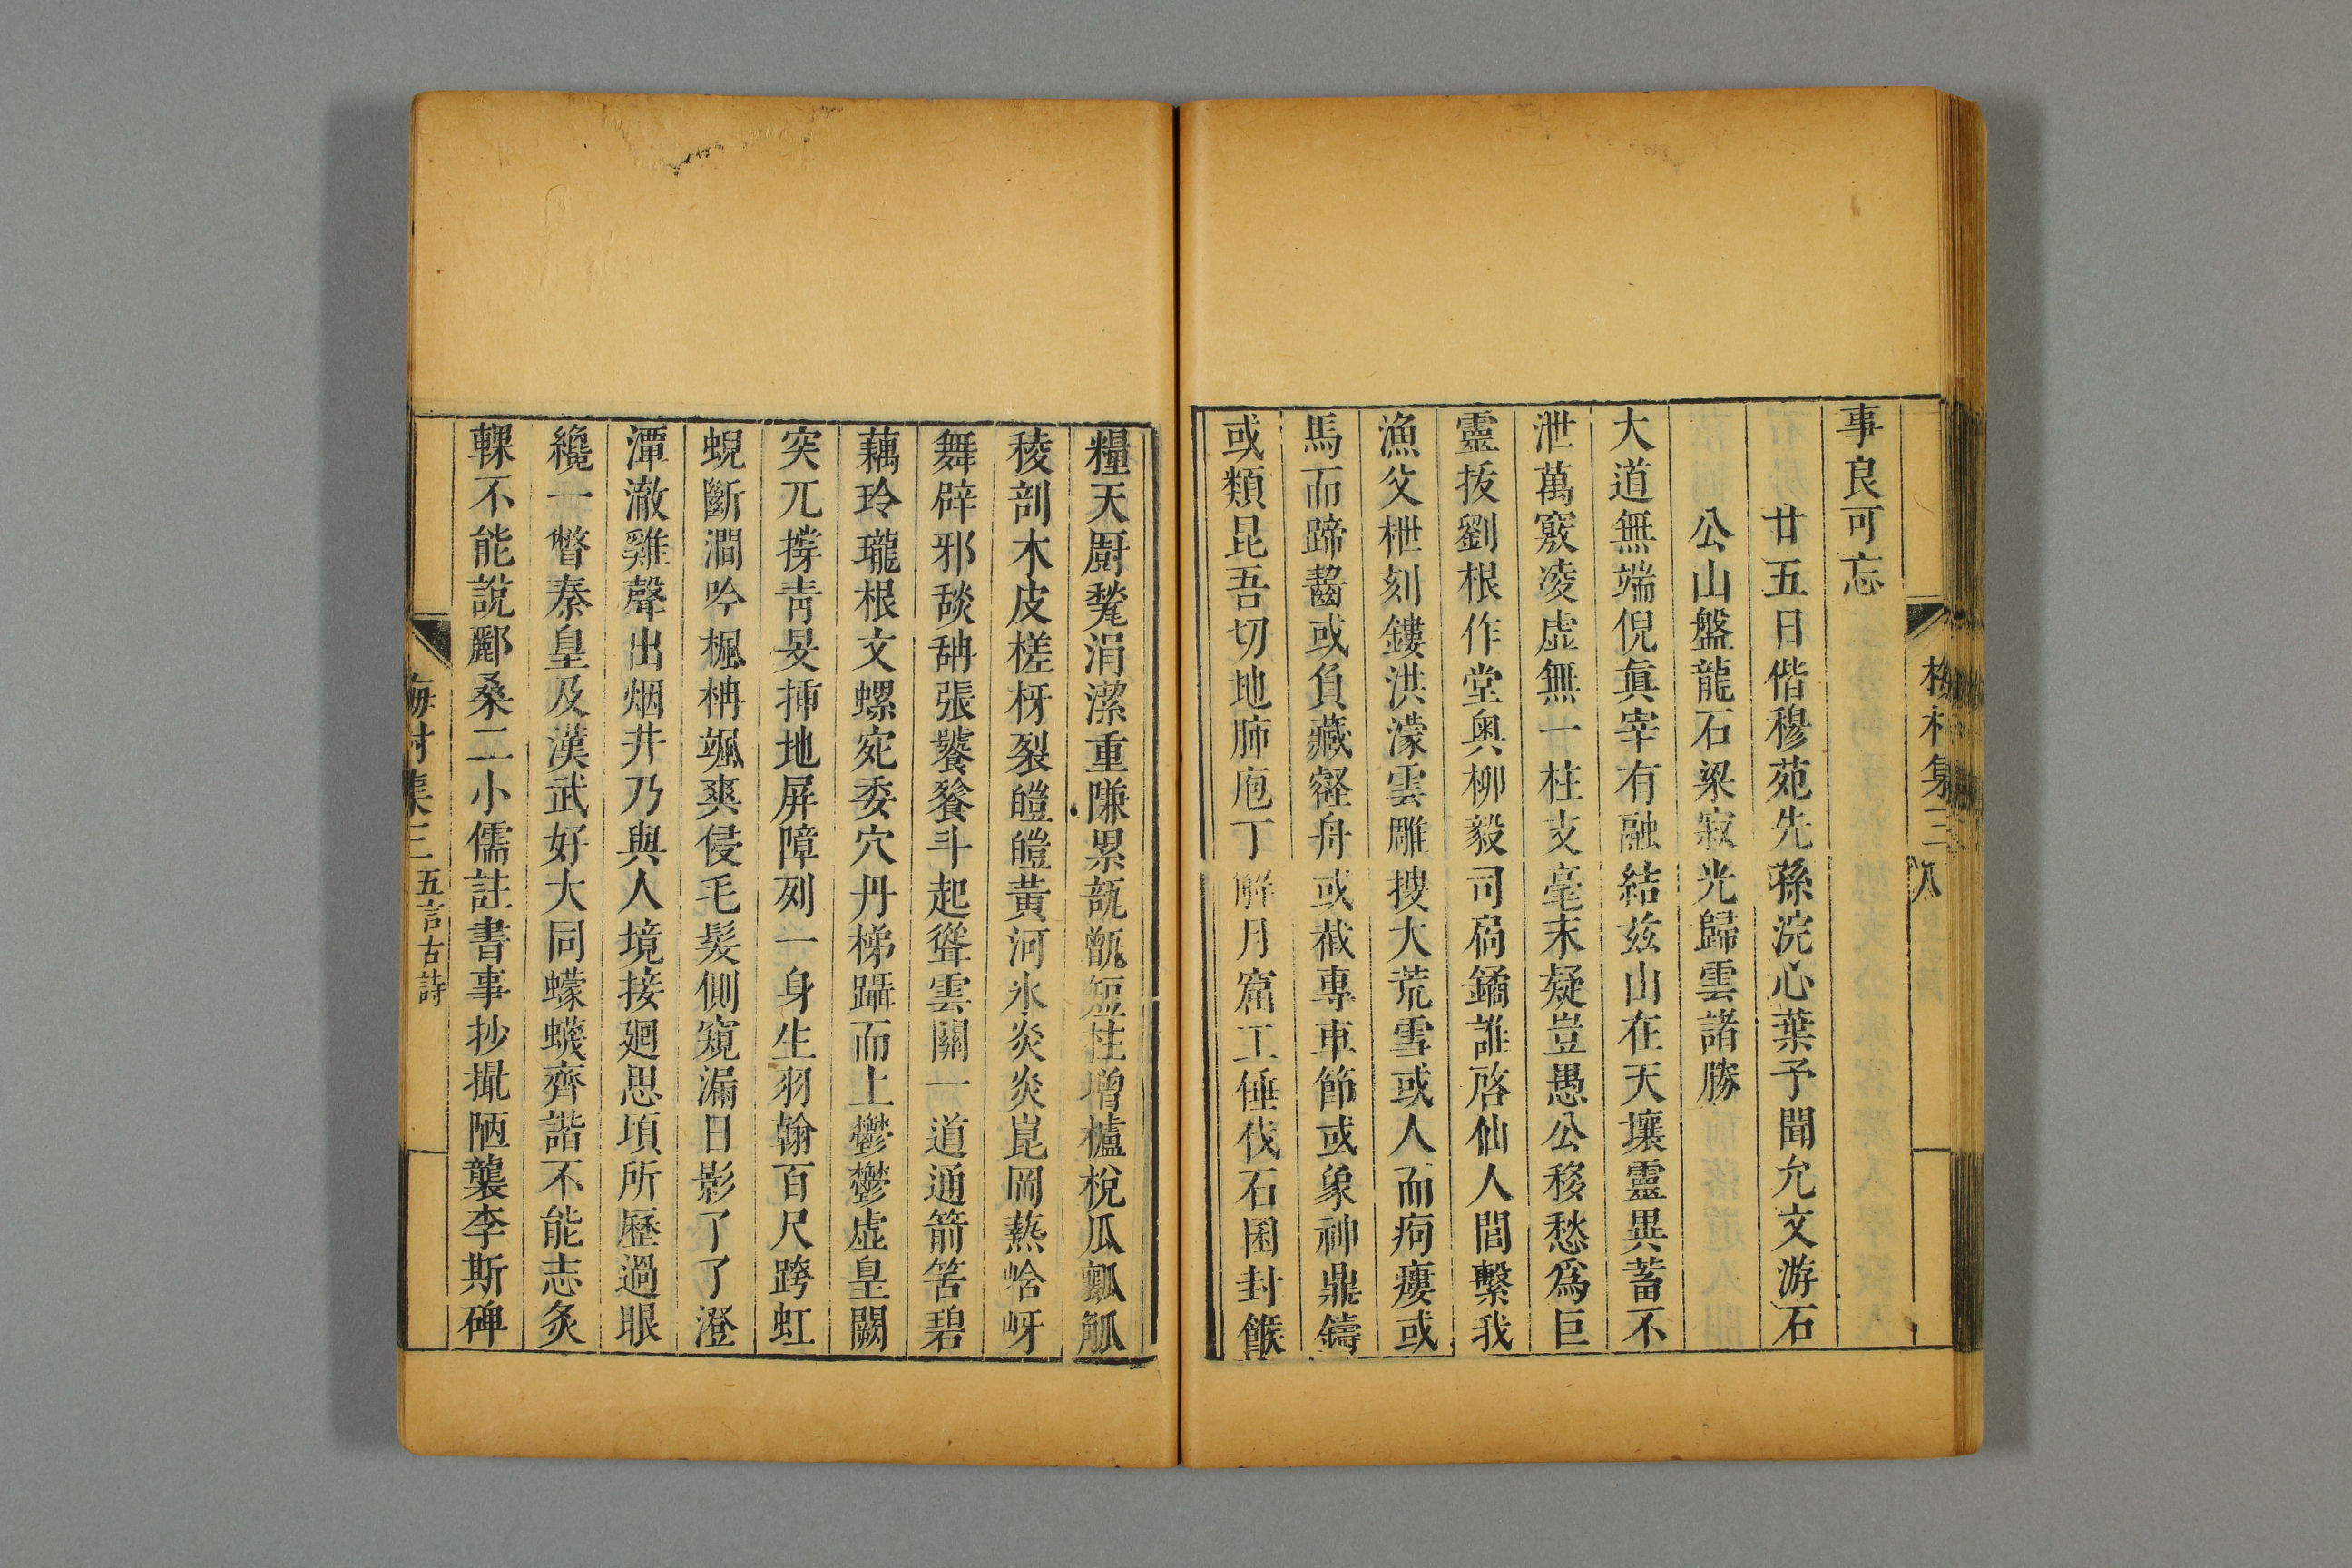 梅村集三 八
事良可忘
廿五日偕穆苑先孫浣心葉予聞允文游石
公山盤龍石梁寂光歸雲諸勝
大道無端倪眞宰有融結兹山在天壤靈異蓄不
泄萬竅凌虛無一柱支毫末疑豈愚公移愁爲巨
靈拔劉根作堂奥柳毅司扃鐍誰啓仙人閭繫我
漁父枻刻鏤洪濛雲雕搜大荒雪或人而痀瘻或
馬而蹄齧或負藏壑舟或截專車節或象神鼎鑄
或類昆吾切地肺庖丁解月窟工倕伐石囷封餱
糧天厨甃涓潔重隒累瓿甑短柱增櫨梲瓜瓤觚
稜剖木皮槎枒裂皚皚黃河氷炎炎崑岡爇峆岈
舞辟邪䑙䑙張饕餮斗起聳雲關一道通箭筈碧
藕玲瓏根文螺宛委穴丹梯躡而上鬱鬱虛皇闕
突兀撐靑旻揷地屏障列一身生羽翰百尺跨虹
蜺斷澗吟楓柟颯爽侵毛髮側窺漏日影了了澄
潭澈雞聲出烟井乃與人境接廻思頃所歷過眼
纔一瞥秦皇及漢武好大同蠓蠛齊諧不能志炙
輠不能說酈桑二小儒註書事抄撮陋襲李斯碑
梅村集三 五言古詩